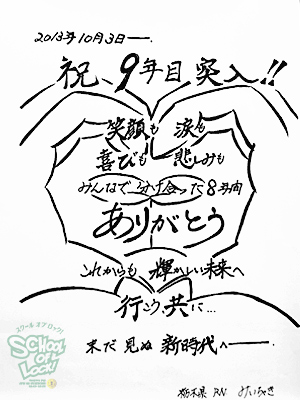 2013年10月3日——.
祝、9年目突入!!
笑顔も 涙も
喜びも 悲しみも
みんなで 分け合った 8年間
ありがとう
これからも 輝かしい未来へ
行こう、共に…
未だ 見ぬ 新時代へ——.
スクール オブ ロック!
SCHOOL
OF
LOCK!
栃木県 RN みぃちゃき